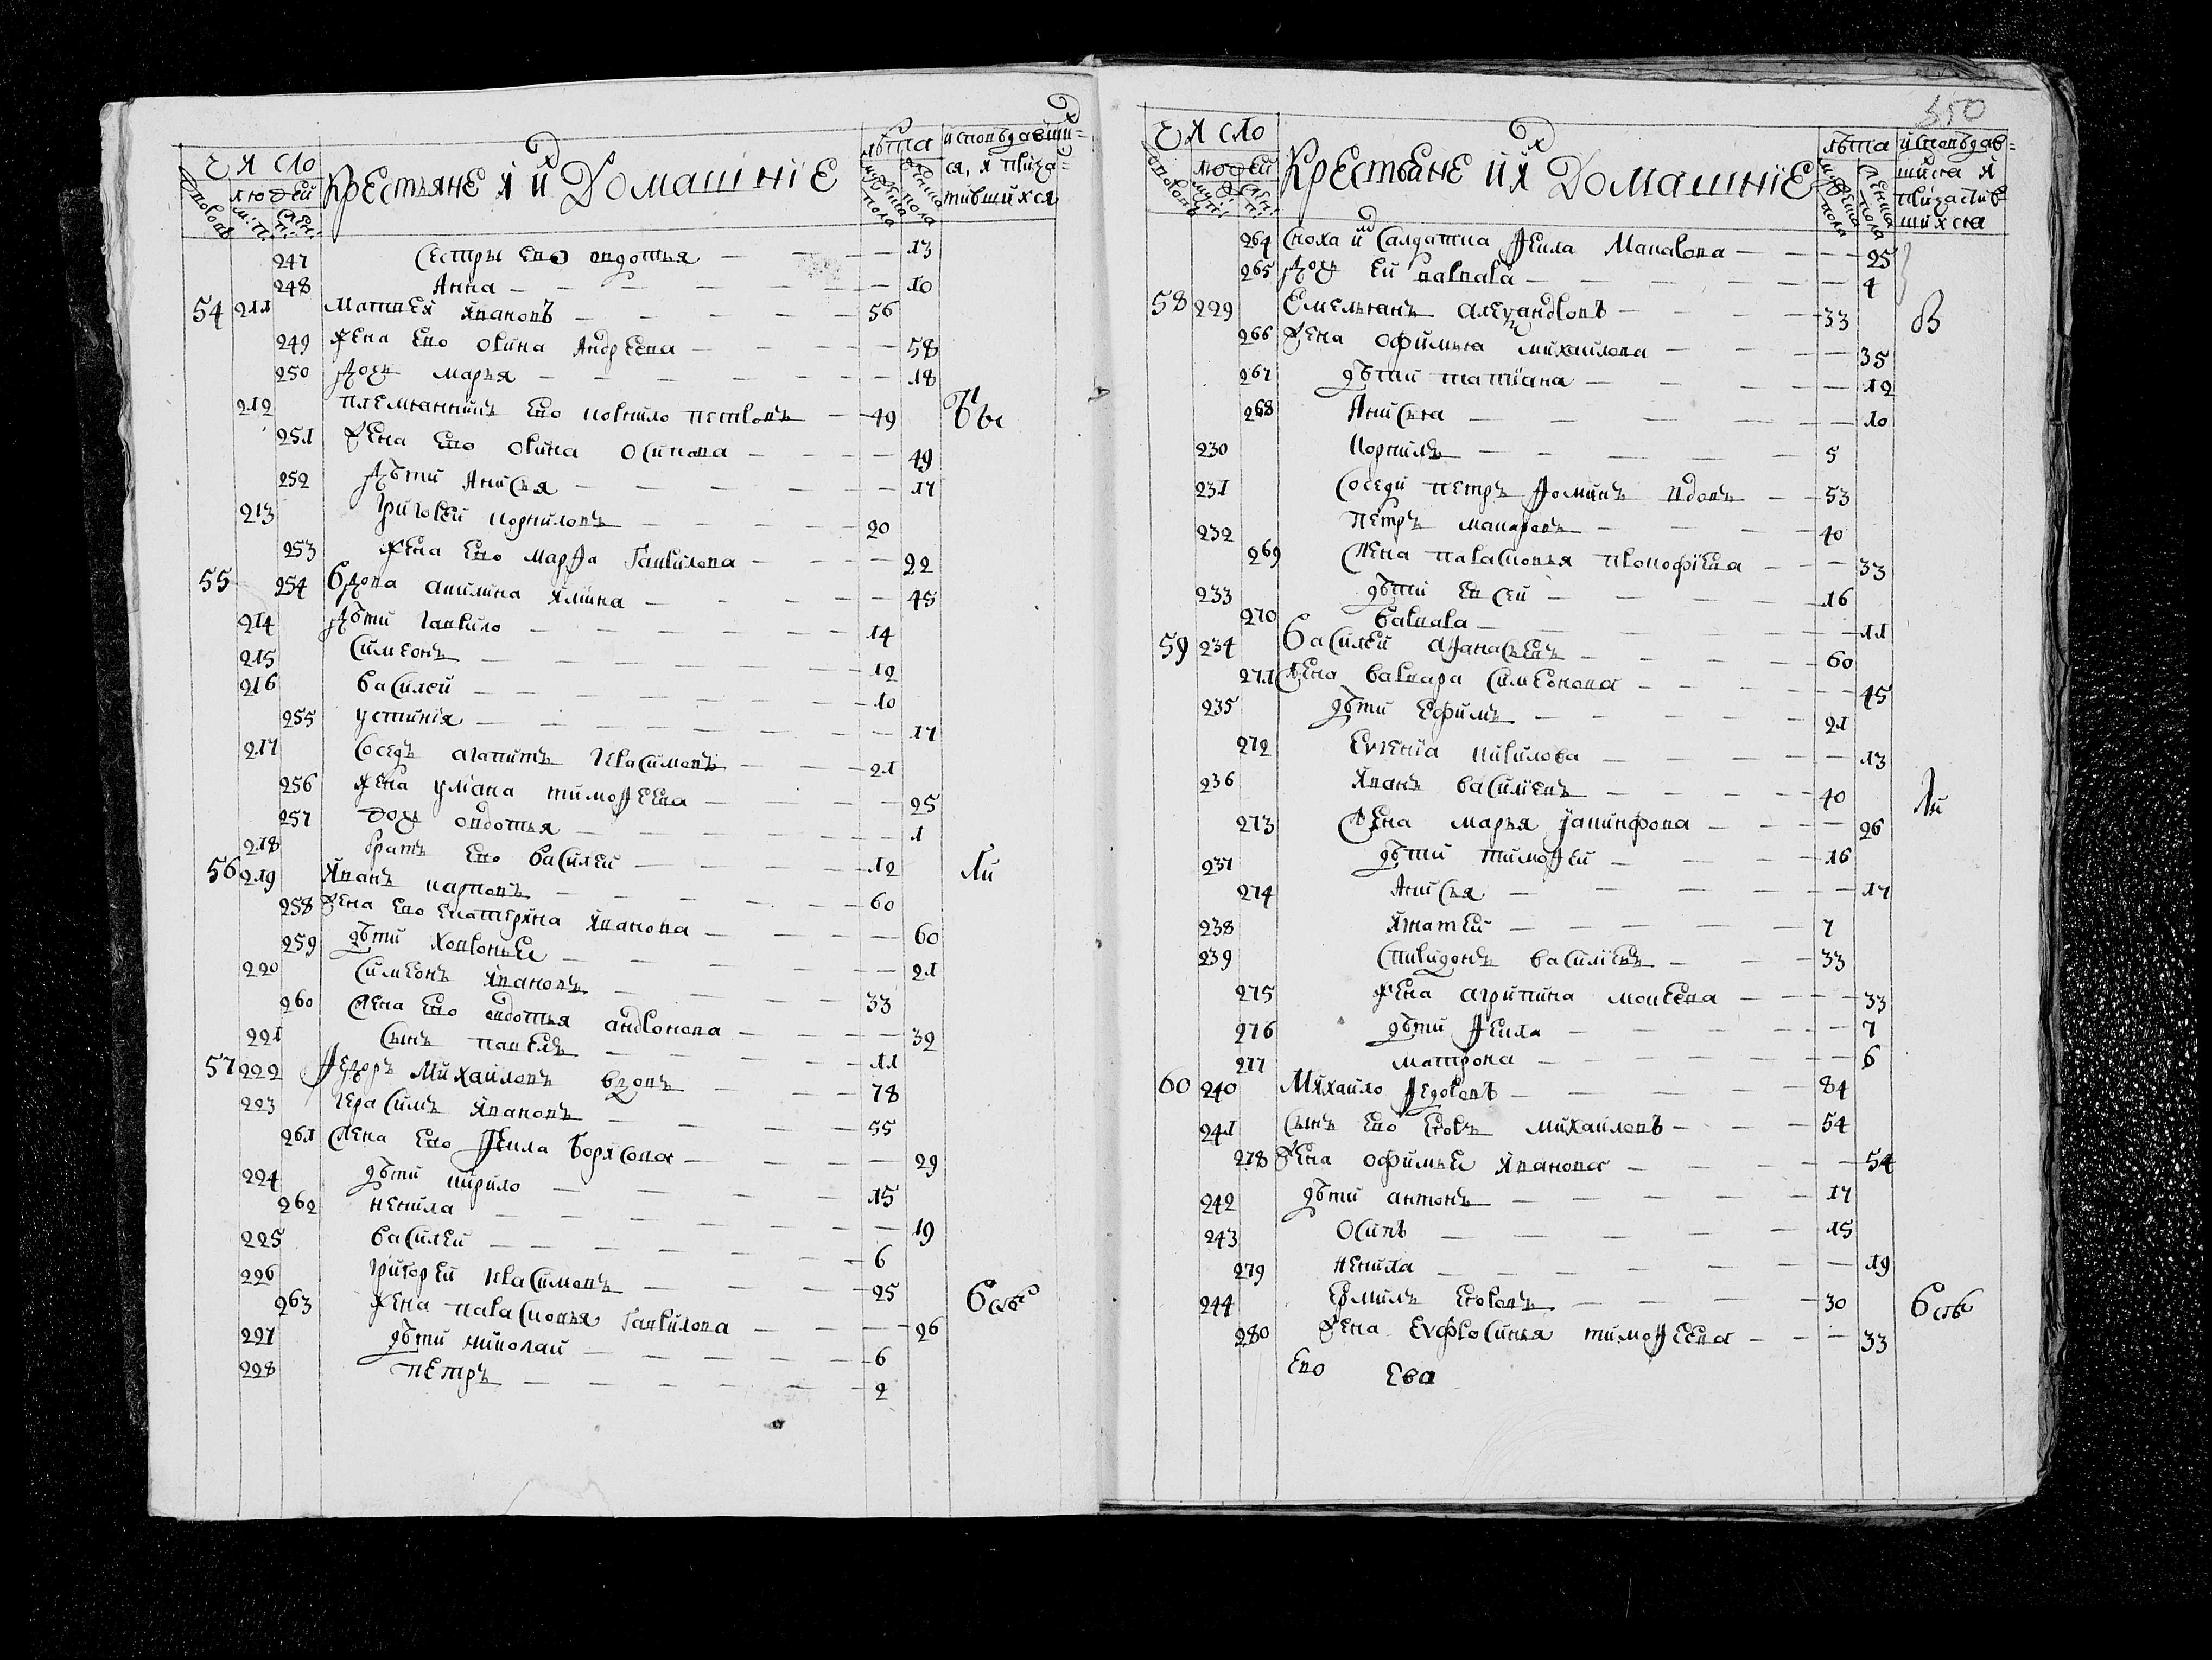 число
людей
Крестьяне и их Домашніе
лѣта
мужеска пола
женска пола
исповѣдавши-
ся, и прича-
тившихся
247 Сестры ево овдотья 13
248 Анна 10
54 211 Матвей Ивановъ 56
249 Жена ево орина Андреева 58
250 Дочь марья 18
212 племянникъ ево корнило петровъ 49
251 Жена ево орина осипова 49
252 Дѣти Анисья 17
213 Григорей корниловъ 20
253 Жена ево марѳа Гаврилова 22
55 254 Вдова акилина Ильина 45
214 Дѣти гаврило 14
215 Симеонъ 12
216 Василей 10
255 устинія 17
217 Соседъ агапитъ герасимовъ 21
256 Жена уліана тимоѳеева 25
257 дочь овдотья 1
218 братъ ево василей 12 Ли
56 219 Иванъ карповъ 60
258 Жена ево екатерина Иванова 60
259 дѣти ховронье 21
220 Симеонъ Ивановъ 33
260 Жена ево овдотья андронова 32
221 Сынъ павелъ 11
57 222 Ѳедоръ Михайловъ вдовъ 78
223 герасимъ Ивановъ 55
261 Жена ево Ѳекла Борисова 29
224 дѣти кирило 15
262 ненила 19
225 Василей 6
226 григорей герасимовъ 25
263 Жена парасковья Гаврилова 26
227 дѣти николай 6
228 петръ 2
350
число
людей
Крестьяне и их Домашніе
лѣта
мужеска пола
женска пола
исповѣдав-
шися и
причастив
шихся
264 Сноха их Салдатка Ѳекла Макарова 25
265 Дочь ей варвара 4
58 229 Емельянъ александровъ 33 В
266 Жена офимья михайлова 35
267 дѣти татиана 12
268 Анисья 10
230 Корнилъ 5
231 Соседи петръ Ѳоминъ вдовъ 53
232 Петръ макаровъ 40
269 Жена парасковья прокофіева 33
233 дѣти евсей 16
270 Варвара 11
59 234 Василей аѳанасьевъ 60
271 Жена варвара симеонова 45
235 дѣти ефимъ 21
272 Евгеніа кирилова 13
236 Иванъ василіевъ 40 Ли
273 Жена марья 26
237 дѣти тимоѳей 16
274 Анисья 17
238 Игнатей 7
239 Спиридонъ василіевъ 33
275 Жена агрипина мокеева 33
276 дѣти Ѳекла 7
277 матрона 6
60 240 Михаило Ѳедоровъ 84
241 Сынъ ево егоръ михайловъ 54
278 Жена офимье Иванова 54
242 дѣти антонъ 17
243 Осипъ 15
279 ненила 19
244 Ермилъ егоровъ 30
280 Жена евфросинья тимоѳеева 33
ево ева